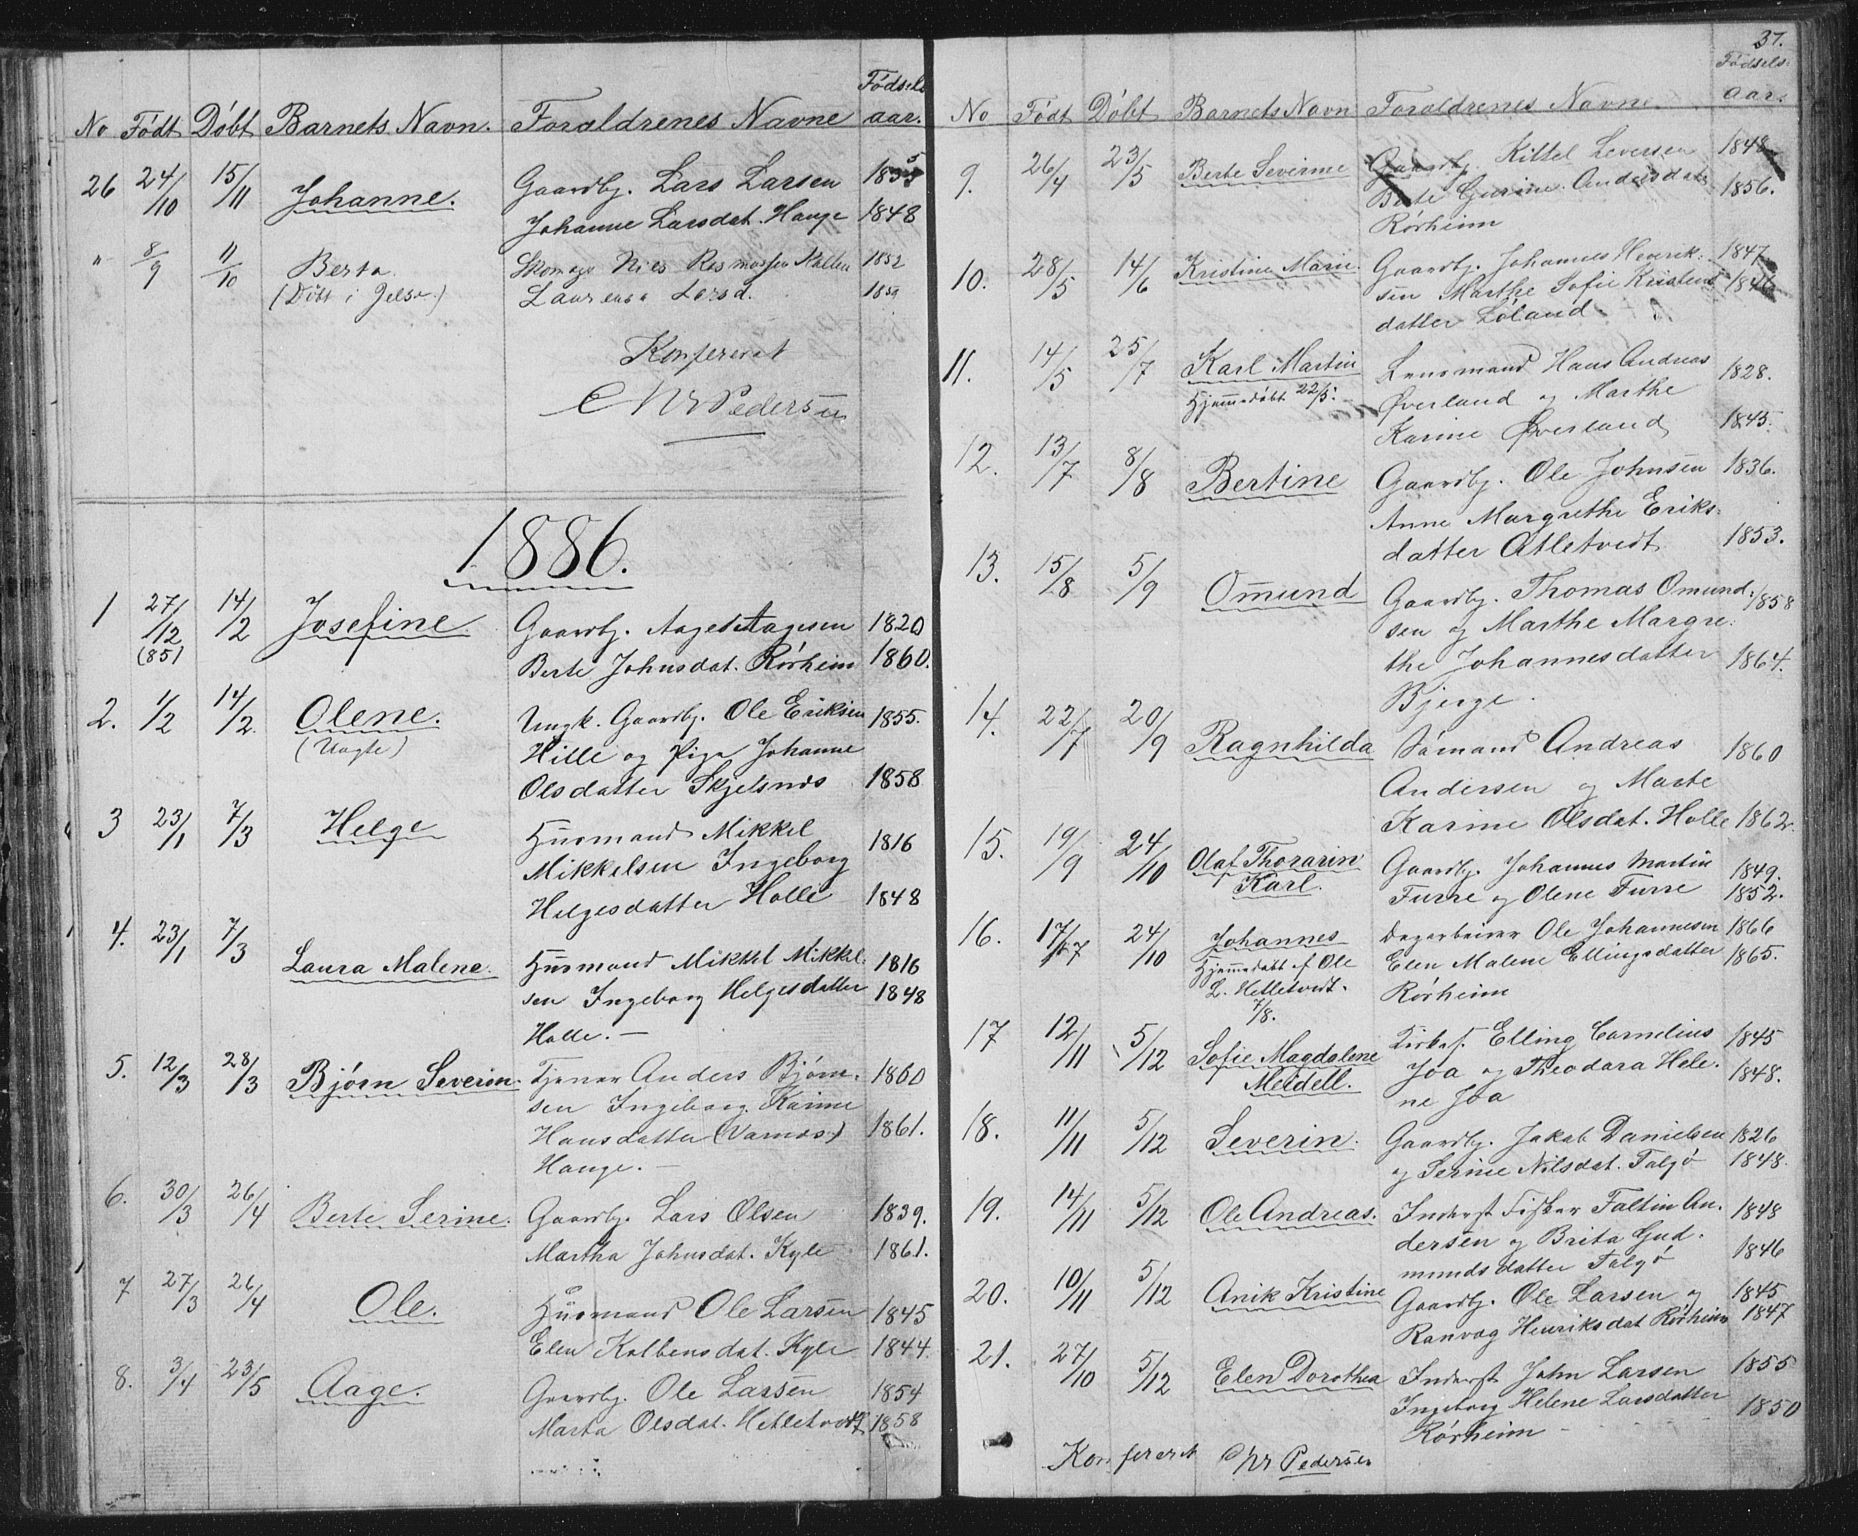 No Født Døbt Barnets Navn. Forældrenes Navne Fødsels aar.
26 24/10 15/11 Johanne. Gaardbr. Lars Larsen
Johanne Larsdat. Hauge 1848
" 8/9 11/10 Berta Skomager Nils Rasmussen 1852
(Døbt i Jelse.) Larsd. 1859
Konfereret
Chr Pedersen
1886.
1 27/12 (85) 14/2 Josefine Gaardbr. Aage Aagesen 1820
Berte Johnsdat. Rørheim 1860.
2. 1/2 14/2. Olene. Ungk. Gaardbr. Ole Eriksen 1855.
(Uægte) Hille og Pige Johanne
Olsdatter Skjelsnes 1858
3 23/1 7/3 Helge Husmand Mikkel 1816
Mikkelsen Ingeborg
Helgesdatter Holle 1848
4. 23/1 7/3 Laura Malene. Husmand Mikkel Mikkel- 1816
sen Ingeborg Helgesdatter 1848
Holle.
5. 12/3 28/3 Bjørn Severin. Tjener Anders Bjørn- 1860
sen Ingeborg Karine
Hansdatter (Varnes) 1861.
Hauge.
6. 30/3 26/4 Berte Serine. Gaardbr. Lars Olsen 1839.
Martha Johnsdat. Kyle 1861.
7 27/3 26/4 Ole. Husmand Ole Larsen 1845
Elen Kolbensdat. Kyle 1844.
8. 3/4 23/5 Aage. Gaardbr. Ole Larsen 1854
Marta Olsdat. Hetletvedt 1858
37.
No Født Døbt Barnets Navn Forældrenes Navne Fødsels aar.
9. 26/4 23/5 Berte Severine Gaardbr. Kittel Seversen 1848
Berte Gurine Andersdat. 1856.
Rørheim
10. 28/5 14/6 Kristine Marie. Gaardbr. Johannes Henrik- 1847
sen Marthe Sofie Kristens-
datter Løland.
11. 14/5 25/7 Karl Martin Lensmand Hans Andreas 1828.
Hjemmedøbt 22/5. Øverland og Marthe
Karine Øverland 1845.
12. 13/7 8/8 Bertine Gaardbr. Ole Johnsen 1836.
Anne Margrethe Eriks-
datter Atletvedt 1853.
13. 15/8 5/9 Omund Gaardbr. Thomas Omund- 1858
sen og Marthe Margre-
the Johannesdatter 1864.
Bjerge.
14. 22/7 20/9 Ragnhilda Sømand Andreas 1860
Andersen og Marte
Karine Olsdat. Holle 1862.
15. 19/9 24/10 Olaf Thorarin Gaardbr. Johannes Martin 1849.
Karl. Furre og Olene Furre 1852.
16. 17/7 24/10 Johannes Dagarbeider Ole Johannesen 1866
Hjemmedøbt af Ole Elen Malene Ellingsdatter 1865.
L. Hetletvedt. Rørheim
7/8.
17 12/11 5/12 Sofie Magdalene Kirkes. Elling Cornelius 1845
Meidell. Joa og Theodora Hele- 1848.
ne Joa
18. 11/11 5/12 Severin. Gaardbr. Jakob Danielsen 1826
og Serine Nilsdat. Talgø 1848.
19. 14/11 5/12 Ole Andreas. Inderst Fisker Faltin An- 1848
dersen og Brita Gud-
mundsdatter Talgø 1846
20. 10/11 5/12 Anik Kristine Gaardbr. Ole Larsen og 1845
Ranvag Henriksdat Rørheim 1847
21. 27/10 5/12 Elen Dorothea Inderst John Larsen 1855
Ingeborg Helene Larsdatter 1850
Rørheim
Konfereret Chr Pedersen